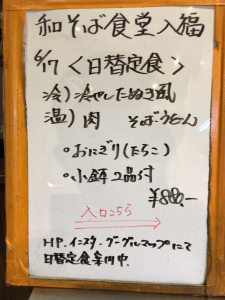 和そば食堂入福
6/17 <日替定食>
冷)冷やしたぬき風
温)肉 そば・うどん
・おにぎり(たらこ)
・小鉢2品付
¥880-
入口こちら
HP.インスタ.グーグルマップにて
日替定食案内中.